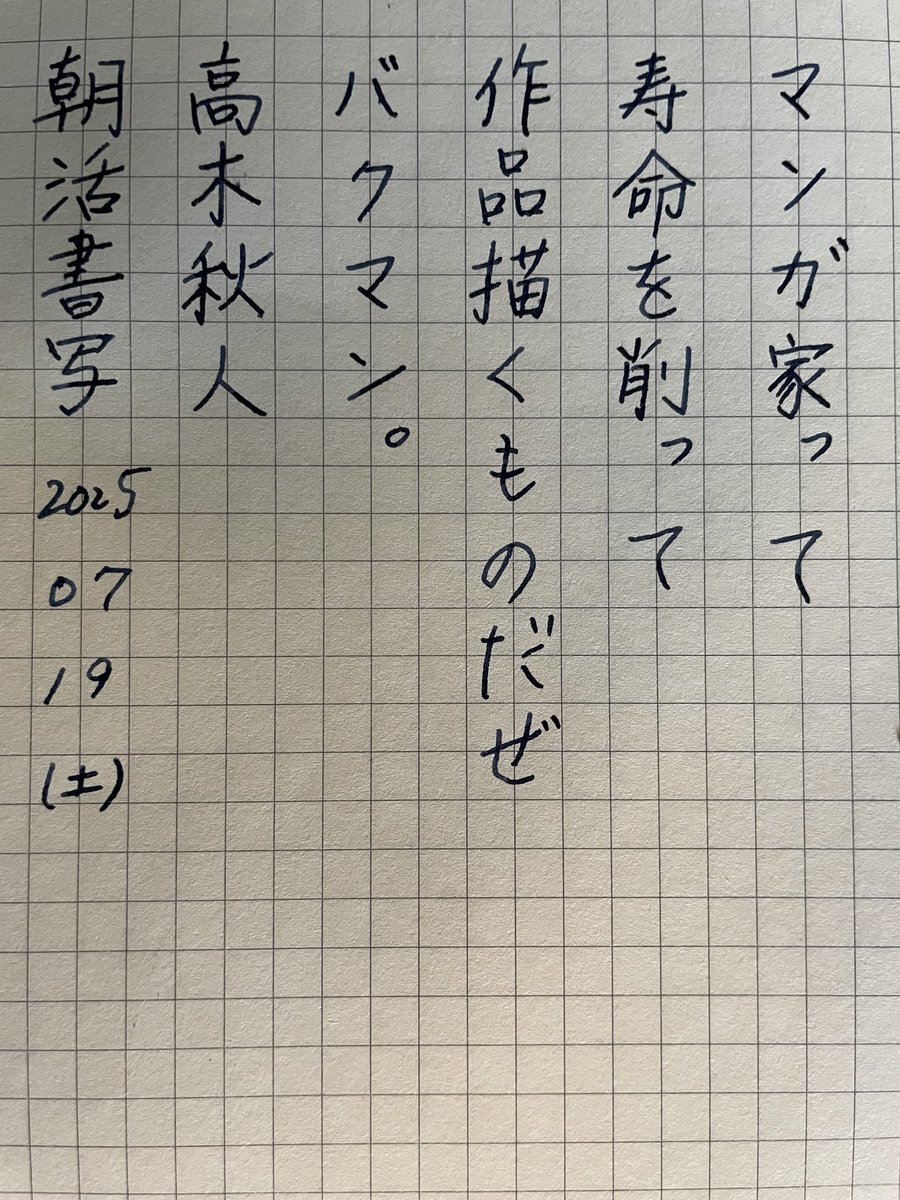 マンガ家って
寿命を削って
作品描くものだぜ
バクマン。
高木秋人
朝活書写
2025
07
19
(土)